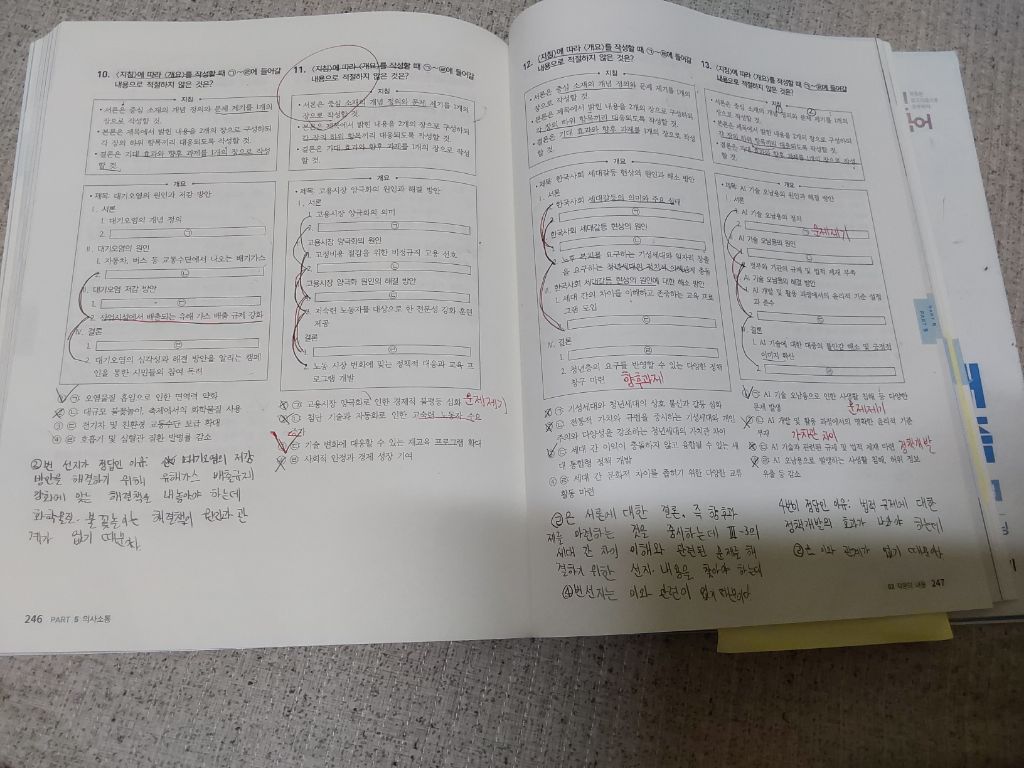 10. <지침>에 따라 <개요>를 작성할 때 ㉠~㉣에 들어갈
내용으로 적절하지 않은 것은?
지침
• 서론은 중심 소재의 개념 정의와 문제 제기를 1개의
장으로 작성할 것.
• 본론은 제목에서 밝힌 내용을 2개의 장으로 구성하되
각 장의 하위 항목끼리 대응되도록 작성할 것.
• 결론은 기대 효과와 향후 과제를 1개의 장으로 작성
할 것.
개요
• 제목: 대기오염의 원인과 저감 방안
Ⅰ. 서론
1. 대기오염의 개념 정의
2. ㉠
Ⅱ. 대기오염의 원인
1. 자동차, 버스 등 교통수단에서 나오는 배기가스
2. ㉡
Ⅲ. 대기오염 저감 방안
1. ㉢
2. 산업시설에서 배출되는 유해 가스 배출 규제 강화
Ⅳ. 결론
1. ㉣
2. 대기오염의 심각성과 해결 방안을 알리는 캠페
인을 통한 시민들의 참여 독려
① ㉠ 오염물질 흡입으로 인한 면역력 약화
② ㉡ 대규모 불꽃놀이, 축제에서의 화학물질 사용
③ ㉢ 전기차 및 친환경 교통수단 보급 확대
④ ㉣ 호흡기 및 심혈관 질환 발병률 감소
②번 선지가 정답인 이유 대기오염의 저감
방안을 해결하기 위해 유해가스 배출규제
강화에 맞는 해결책을 내놓아야 하는데
화학물질 불꽃놀이는 해결책의 원인과 관
계가 없기 때문
246 PART 5 의사소통
11. <지침>에 따라 <개요>를 작성할 때 ㉠~㉣에 들어갈
내용으로 적절하지 않은 것은?
지침
• 서론은 중심 소재의 개념 정의와 문제 제기를 1개의
장으로 작성할 것.
• 본론은 제목에서 밝힌 내용을 2개의 장으로 구성하되
각 장의 하위 항목끼리 대응되도록 작성할 것.
• 결론은 기대 효과와 향후 과제를 1개의 장으로 작성
할 것.
개요
• 제목: 고용시장 양극화의 원인과 해결 방안
Ⅰ. 서론
1. 고용시장 양극화의 의미
2. ㉠
고용시장 양극화의 원인
1. 고정비용 절감을 위한 비정규직 고용 선호
2. ㉡
고용시장 양극화 원인의 해결 방안
1. ㉢
2. 저숙련 노동자를 대상으로 한 전문성 강화 훈련
제공
결론
1. ㉣
2. 노동 시장 변화에 맞는 정책적 대응과 교육 프
로그램 개발
① ㉠ 고용시장 양극화로 인한 경제적 불평등 심화 문제제기
② ㉡ 첨단 기술과 자동화로 인한 고숙련 노동자 수요
증가
③ ㉢ 기술 변화에 대응할 수 있는 재교육 프로그램 확대
④ ㉣ 사회적 안정과 경제 성장 기여
12. <지침>에 따라 <개요>를 작성할 때 ㉠~㉣에 들어갈
내용으로 적절하지 않은 것은?
지침
• 서론은 중심 소재의 개념 정의와 문제 제기를 1개의
장으로 작성할 것.
• 본론은 제목에서 밝힌 내용을 2개의 장으로 구성하되
각 장의 하위 항목끼리 대응되도록 작성할 것.
• 결론은 기대 효과와 향후 과제를 1개의 장으로 작성
할 것.
개요
• 제목: 한국사회 세대갈등 현상의 원인과 해소 방안
Ⅰ. 서론
1. 한국사회 세대갈등의 의미와 주요 실태
2. ㉠
한국사회 세대갈등 현상의 원인
1. ㉡
2. 노후 복지를 요구하는 기성세대와 일자리 창출
을 요구하는 청년세대의 정치적 의제 충돌
Ⅲ. 한국사회 세대갈등 현상의 원인에 대한 해소 방안
1. 세대 간의 차이를 이해하고 존중하는 교육 프로
그램 도입
2. ㉢
Ⅳ. 결론
1. ㉣
2. 청년층의 요구를 반영할 수 있는 다양한 정책
창구 마련 향후과제
① ㉠ 기성세대와 청년세대의 상호 불신과 갈등 심화
② ㉡ 전통적 가치와 규범을 중시하는 기성세대와 개인
주의와 다양성을 강조하는 청년세대의 가치관 차이
③ ㉢ 세대 간 이익이 충돌하지 않고 융합될 수 있는 세
대 통합형 정책 개발
④ ㉣ 세대 간 문화적 차이를 좁히기 위한 다양한 교류
활동 마련
㉣은 서론에 대한 결론, 즉 향후과
제를 마련하는 것을 중시하는데 Ⅲ-3의
세대 간 차이 이해와 관련된 문제를 해
결하기 위한 선지 내용을 찾아야 하는데
④번선지는 이와 관련이 없기 때문이다
13. <지침>에 따라 <개요>를 작성할 때 ㉠~㉣에 들어갈
내용으로 적절하지 않은 것은?
지침
• 서론은 중심 소재의 개념 정의와 문제 제기를 1개의
장으로 작성할 것.
• 본론은 제목에서 밝힌 내용을 2개의 장으로 구성하되
각 장의 하위 항목끼리 대응되도록 작성할 것.
• 결론은 기대 효과와 향후 과제를 1개의 장으로 작성
할 것.
개요
• 제목: AI 기술 오남용의 원인과 해결 방안
Ⅰ. 서론
1. AI 기술 오남용의 정의
2. ㉠ 문제제기
AI 기술 오남용의 원인
1. ㉡
2. 정부와 기관의 규제 및 법적 제재 부족
AI 기술 오남용의 해결 방안
1. AI 개발 및 활용 과정에서의 윤리적 기준 설정
과 준수
2. ㉢
Ⅳ. 결론
1. AI 기술에 대한 대중의 불안감 해소 및 긍정적
이미지 확산
2. ㉣
① ㉠ AI 기술 오남용으로 인한 사생활 침해 등 다양한
문제 발생 문제제기
② ㉡ AI 개발 및 활용 과정에서의 명확한 윤리적 기준
부재
③ ㉢ AI 기술과 관련된 규제 및 법적 제재 마련 정책개발
④ ㉣ AI 오남용으로 발생하는 사생활 침해, 허위 정보
유출 등 감소
4번이 정답인 이유: 법적 규제에 대한
정책개발의 효과가 나와야 하는데
이와 관계가 없기 때문이다
03 작문의 내용 247
PART 5